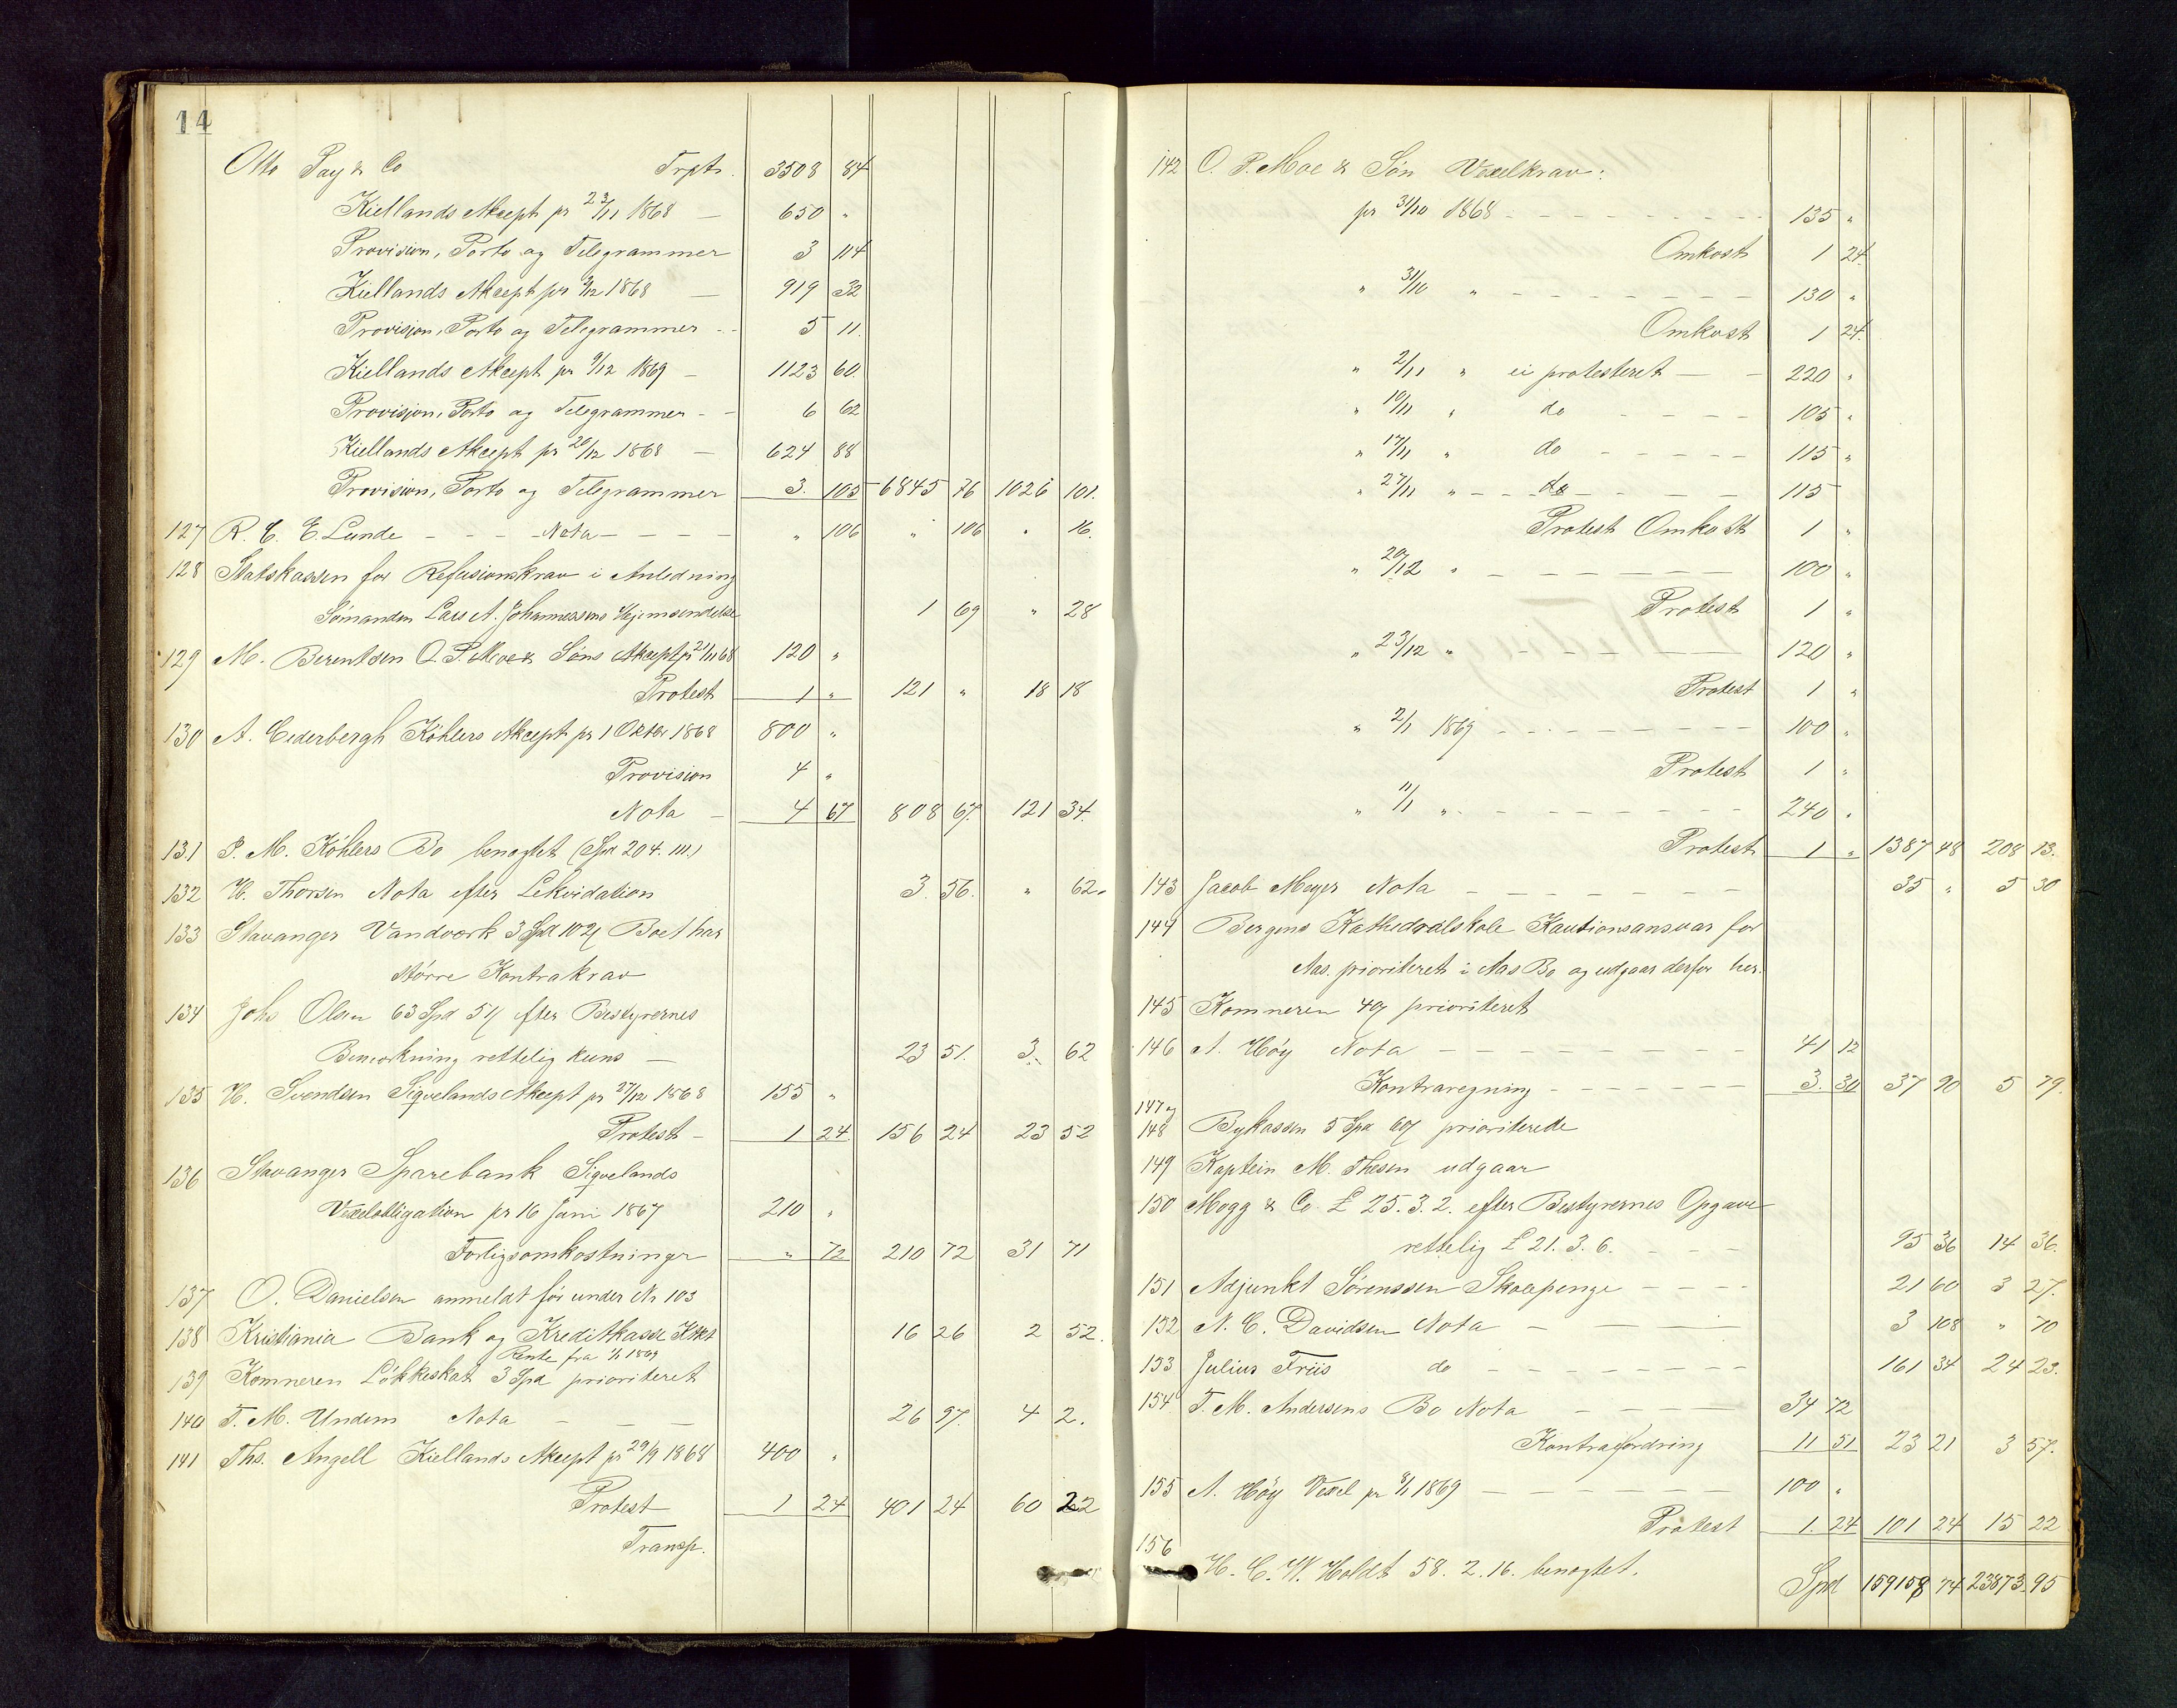 14
Otto Pay & Co Trpt. 3508 84
Kiellands Akcept pr 23/11 1868 — 650 "
Provision, Porto og Telegrammer 3 114
Kiellands Akcept pr 3/12 1868 — 919 32
Provision, Porto og Telegrammer - - 5 11.
Kiellands Akcept pr 9/12 1869 — 1123 60.
Provision, Porto og Telegrammer - - 6 62
Kiellands Akcept pr 20/12 1868 — 624 88
Provision, Porto og Telegrammer 3. 105 6845 76 1026 101.
127 R. C. E. Lunde - - - - Nota - - - - " 106 " 106 " 16.
128 Statskassen for Refusionskrav i Anledning
Sömanden Lars A. Johannessens Hjemsendelse 1 69 " 28
129 M. Berentsen O. P. Moe & Söns Akcept pr 21/11 68 120 "
Protest 1 " 121 " 18 18
130 A. Cederbergh Köhlers Akcept pr 1 Oktbr 1868 800 "
Provision 4 "
Nota — 4 67 808 67. 121 34.
131 P. M. Köhlers Bo benegtet (Spd 204. 111.)
132 H. Thorsen Nota efter Lekvidation 3. 56. " 62.
133 Stavanger Vandværk 3 Spd 102 ſ Boet har
större Kontrakrav
134 Johs Olsen 63 Spd 51 ſ efter Bestyrernes
Bemærkning rettelig kuns — 23 51. 3. 62
135 H. Svendsen Sigvelands Akcept pr 27/12 1868 155 "
Protest — 1 24 156 24 23 52
136 Stavanger Sparebank Sigvelands
Vexelobligation pr 16 Juni 1867 210 "
Forligsomkostninger " 72 210 72 31 71
137 O. Danielsen anmeldt för under No 103
138 Kristiania Bank og Kreditkasse 16 26 2 52.
Rente fra 1/1 1869
139 Kemneren Lökkeskat 3 Spd prioriteret
140 T. M. Undem Nota — — — 26 97. 4 2.
141 Ths. Angell Kiellands Akcept pr 29/9 1868 400 "
Protest 1 24 401 24 60 22
Transp.
142 O. P. Moe & Sön Vexelkrav:
pr 31/10 1868 - - - - - - - 135 "
Omkost 1 24.
" 31/10 " - - - - - - - 130 "
Omkost 1 24.
" 2/11 " ei protesteret — - 220 "
" 10/11 " do - - - - 105 "
" 17/11 " do - - - - - 115 "
" 27/11 " - - do - - - - - 115
Protest Omkost 1 "
" 20/12 " - - - - - - - 100 "
Protest 1 "
" 23/12 " - - - - - 120 "
Protest 1 "
" 2/1 1869 - - - - - - - 100 "
Protest 1 "
" 11/1 " - - - - - - - 240 "
Protest 1 " 1387 48 208 13.
143 Jacob Meyer Nota - - - - - - - 35 " 5 30
144 Bergens Kathedralskole Kautionsansvar for
Aas. prioriteret i Aas Bo og udgaar derfor her.
145 Kemneren 49 prioriteret
146 A. Höy Nota - - - - - - - 41 12
Kontraregning - - - - - - 3. 30 37 90 5 79.
147 og
148 Bykassen 5 Spd 60 ſ prioriterede
149 Kaptein M. Thesen udgaar
150 Mogg & Co £ 25. 3. 2. efter Bestyrernes Opgave
rettelig £ 21. 3. 6. - - - 95 36 14 36.
151 Adjunkt Sörenssen Skolepenge - - - - 21 60 3 27.
152 N. C. Davidsen Nota - - - - 3 108 " 70
153 Julius Friis do - - - - - - - 161 34 24 23.
154 T. M. Andersens Bo Nota - - - - 34 72
Kontrafordring 11 51 23 21 3 57.
155 A. Höy Vexel pr 8/1 1869 - - - - - - 100 "
Protest 1. 24 101 24 15 22
156 H. C. W. Holdt 58. 2. 16. benegtet.
Spd 159158 74 23873 95